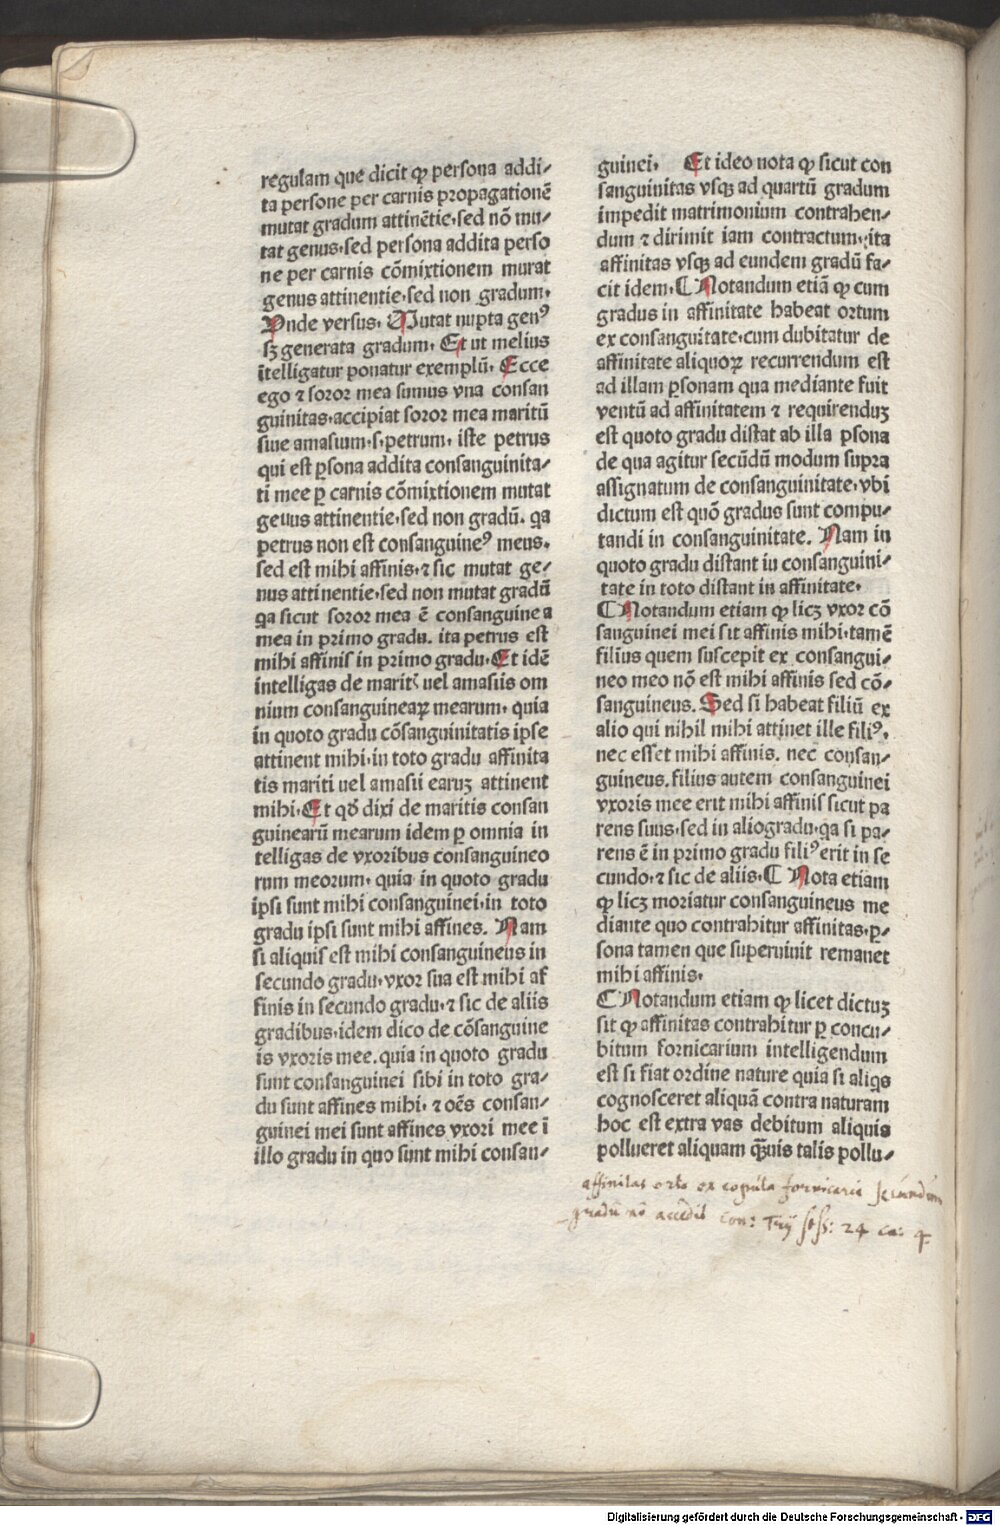 regulam que dicit qꝙ persona addi⸗
ta persone per carnis propagationē
mutat gradum attinētie·sed nō mu⸗
tat genus·sed persona addita perso
ne per carnis cōmixtionem murat
genus attinentie·sed non gradum·
Vnde versus· Mutat nupta genꝰ
sꝫ generata gradum· Et ut melius
ītelligatur ponatur exemplū· Ecce
ego ⁊ soror mea sumus vna consan
guinitas·accipiat soror mea maritū
siue amasium·s·petrum· iste petrus
qui est ꝑsona addita consanguinita⸗
ti mee ꝑ carnis cōmixtionem mutat
genus attinentie·sed non gradū· qa
petrus non est consanguineꝰ meus·
sed est mihi affinis·⁊ sic mutat ge⸗
nus attinentie·sed non mutat gradū
qa sicut soror mea ē consanguinea
mea in primo gradu. ita petrus est
mihi affinis in primo gradu·Et idē
intelligas de maritꝭ uel amasiis om
nium consanguineaꝝ mearum· quia
in quoto gradu cōsanguinitatis ipse
attinent mihi·in toto gradu affinita
tis mariti uel amasii earuꝫ attinent
mihi·Et qđ dixi de maritis consan
guinearū mearum idem ꝑ omnia in
telligas de vxoribus consanguineo
rum meorum· quia in quoto gradu
ipsi sunt mihi consanguinei·in toto
gradu ipsi sunt mihi affines. Nam
si aliquis est mihi consanguineus in
secundo gradu·vxor sua est mihi af
finis in secundo gradu·⁊ sic de aliis
gradibus·idem dico de cōsanguine
is vxoris mee.quia in quoto gradu
sunt consanguinei sibi in toto gra⸗
du sunt affines mihi· ⁊ oēs consan⸗
guinei mei sunt affines vxori mee ī
illo gradu in quo sunt mihi consan⸗
guinei· Et ideo nota qꝙ sicut con
sanguinitas vsqꝫ ad quartū gradum
impedit matrimonium contrahen⸗
dum ⁊ dirimit iam contractum·ita
affinitas vsqꝫ ad eundem gradū fa⸗
cit idem·¶ Notandum etiā qꝙ cum
gradus in affinitate habeat ortum
ex consanguitate·cum dubitatur de
affinitate aliquoꝝ recurrendum est
ad illam ꝑsonam qua mediante fuit
ventū ad affinitatem ⁊ requirenduꝫ
est quoto gradu distat ab illa ꝑsona
de qua agitur secūdū modum supra
assignatum de consanguinitate·vbi
dictum est quō gradus sunt compu⸗
tandi in consanguinitate. Nam in
quoto gradu distant iu consanguini⸗
tate in toto distant in affinitate·
¶Notandum etiam qꝙ licꝫ vxor cō
sanguinei mei sit affinis mihi·tamē
filius quem suscepit ex consangui⸗
neo meo nō est mihi affinis sed cō⸗
sanguineus. Sed si habeat filiū ex
alio qui nihil mihi attinet ille filiꝰ·
nec esset mihi affinis. nec consan⸗
guineus.filius autem consanguinei
vxoris mee erit mihi affinis sicut pa
rens suus·sed in aliogradu·qa si pa⸗
rens ē in primo gradu filiꝰ erit in se
cundo·⁊ sic de aliis·¶ Nota etiam
qꝙ licꝫ moriatur consanguineus me
diante quo contrahitur affinitas·ꝑ⸗
sona tamen que superuiuit remanet
mihi affinis·
¶Notandum etiam qꝙ licet dictuꝫ
sit qꝙ affinitas contrahitur ꝑ concu⸗
bitum fornicarium intelligendum
est si fiat ordine nature quia si aliqs
cognosceret aliquā contra naturam
hoc est extra vas debitum aliquis
pollueret aliquam qᷓuis talis pollu⸗
affinitas orta ex copula fornicaria secundum
gradū nō accedit con: Trij sess: 24 ca: 4.
Digitalisierung gefördert durch die Deutsche Forschungsgemeinschaft - DFG